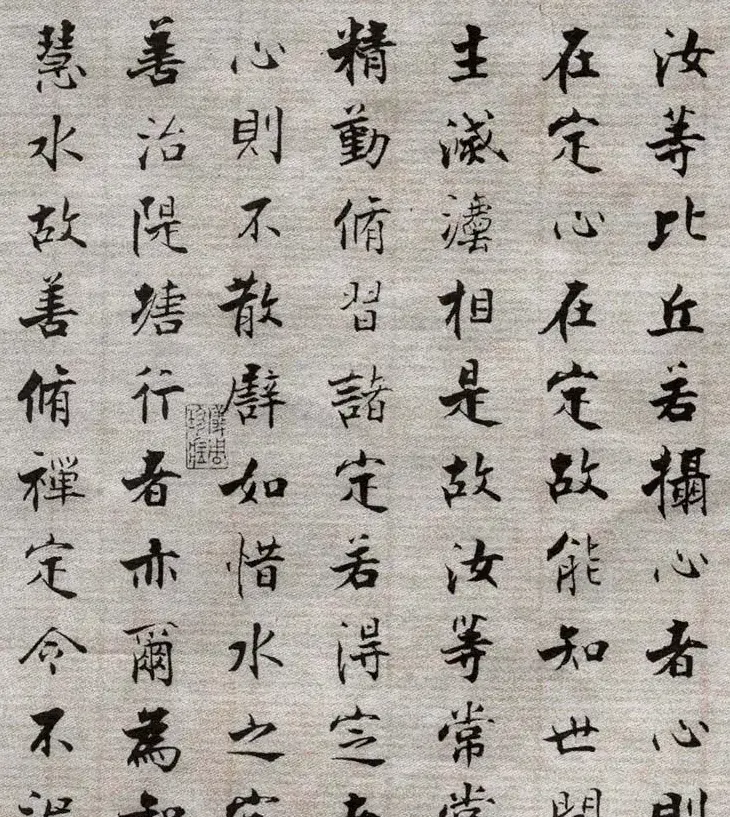 汝等比丘若攝心者心則
在定心在定故能知世間
生滅灋相是故汝等常當
精勤脩習諸定若得定者
心則不散譬如惜水之家
善治隄塘行者亦爾為智
慧水故善脩禪定令不漏